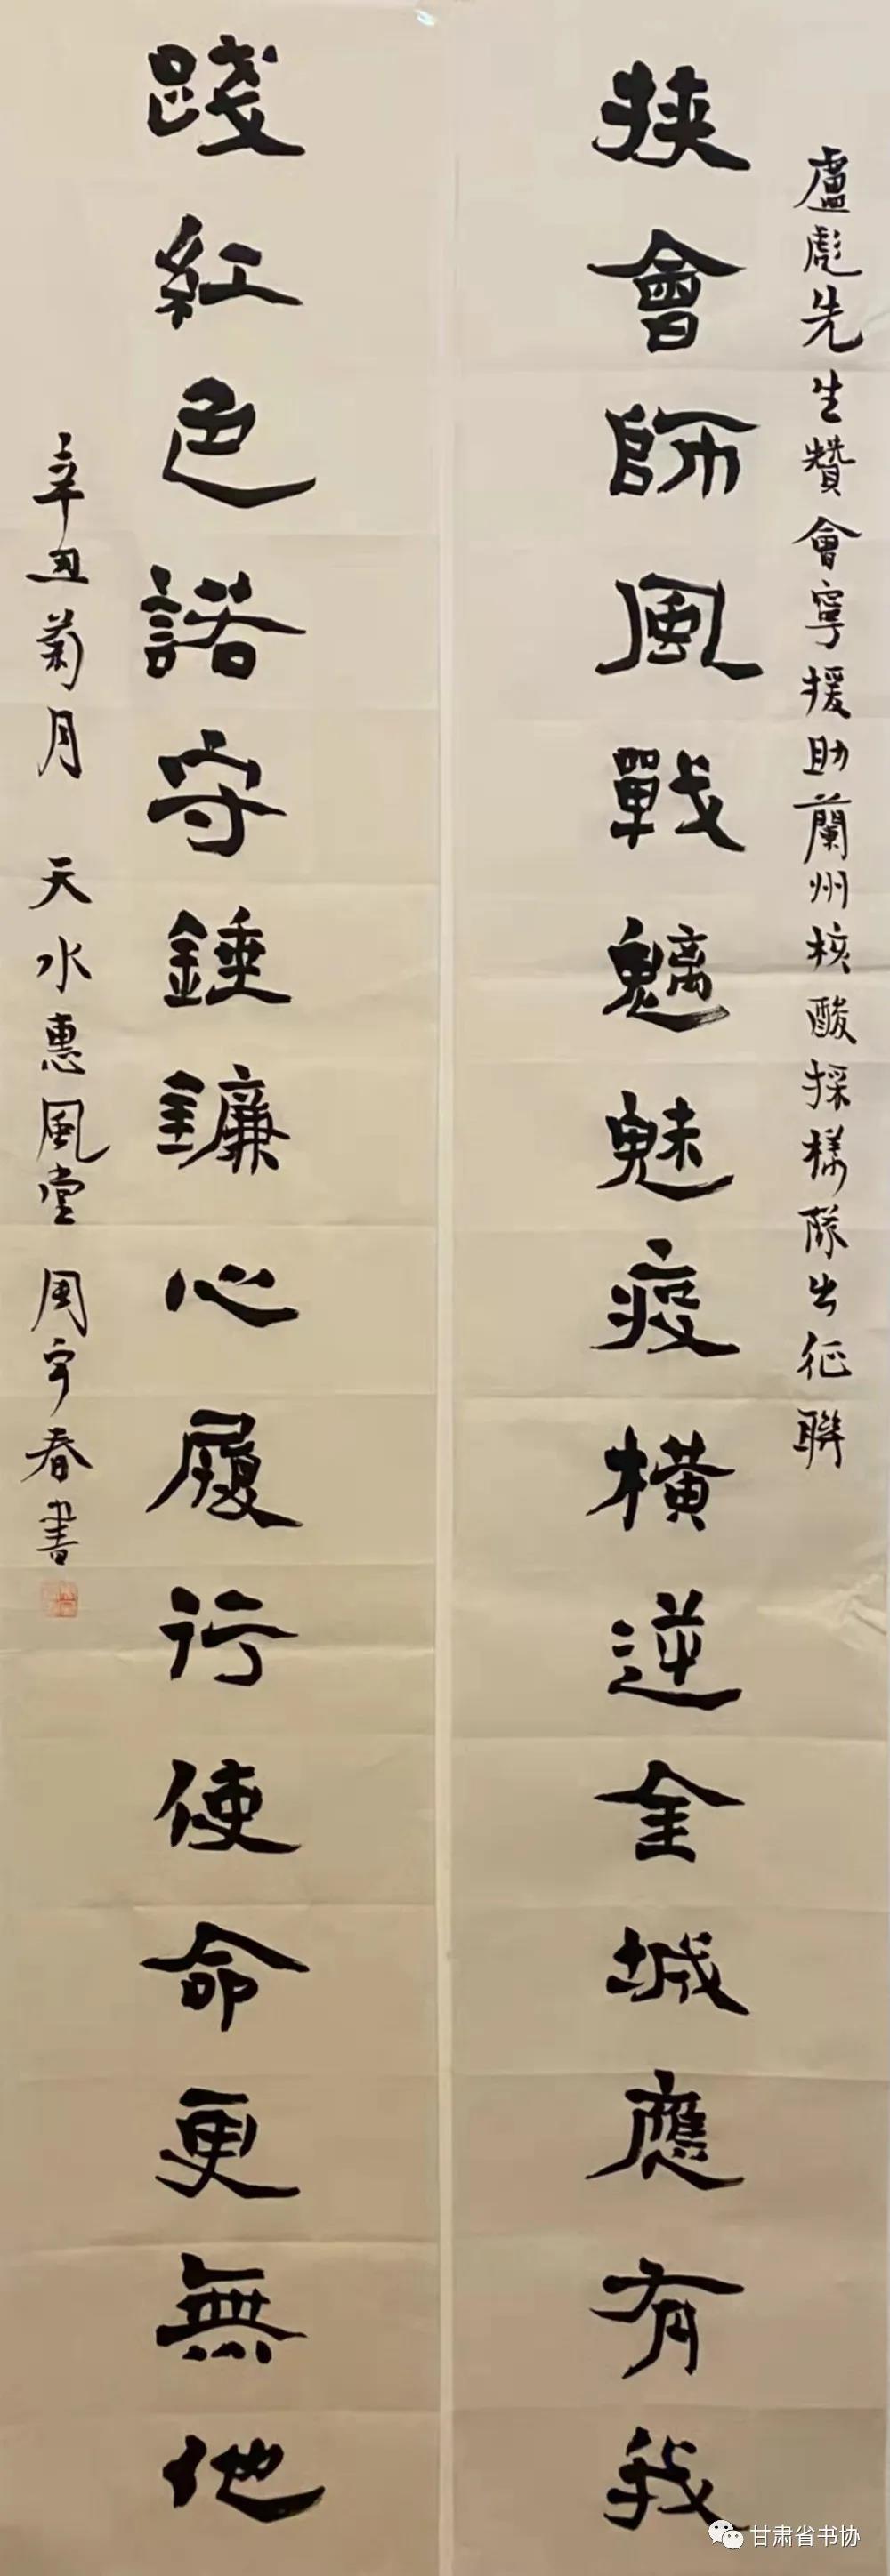 盧彪先生贊會寧援助蘭州核酸採樣隊出征聯
挾會師風戰魑魅疫橫逆金城應有我
踐紅色諾守錘鐮心履行使命更無他
辛丑菊月 天水惠風堂 周宇春書
甘肃省书协